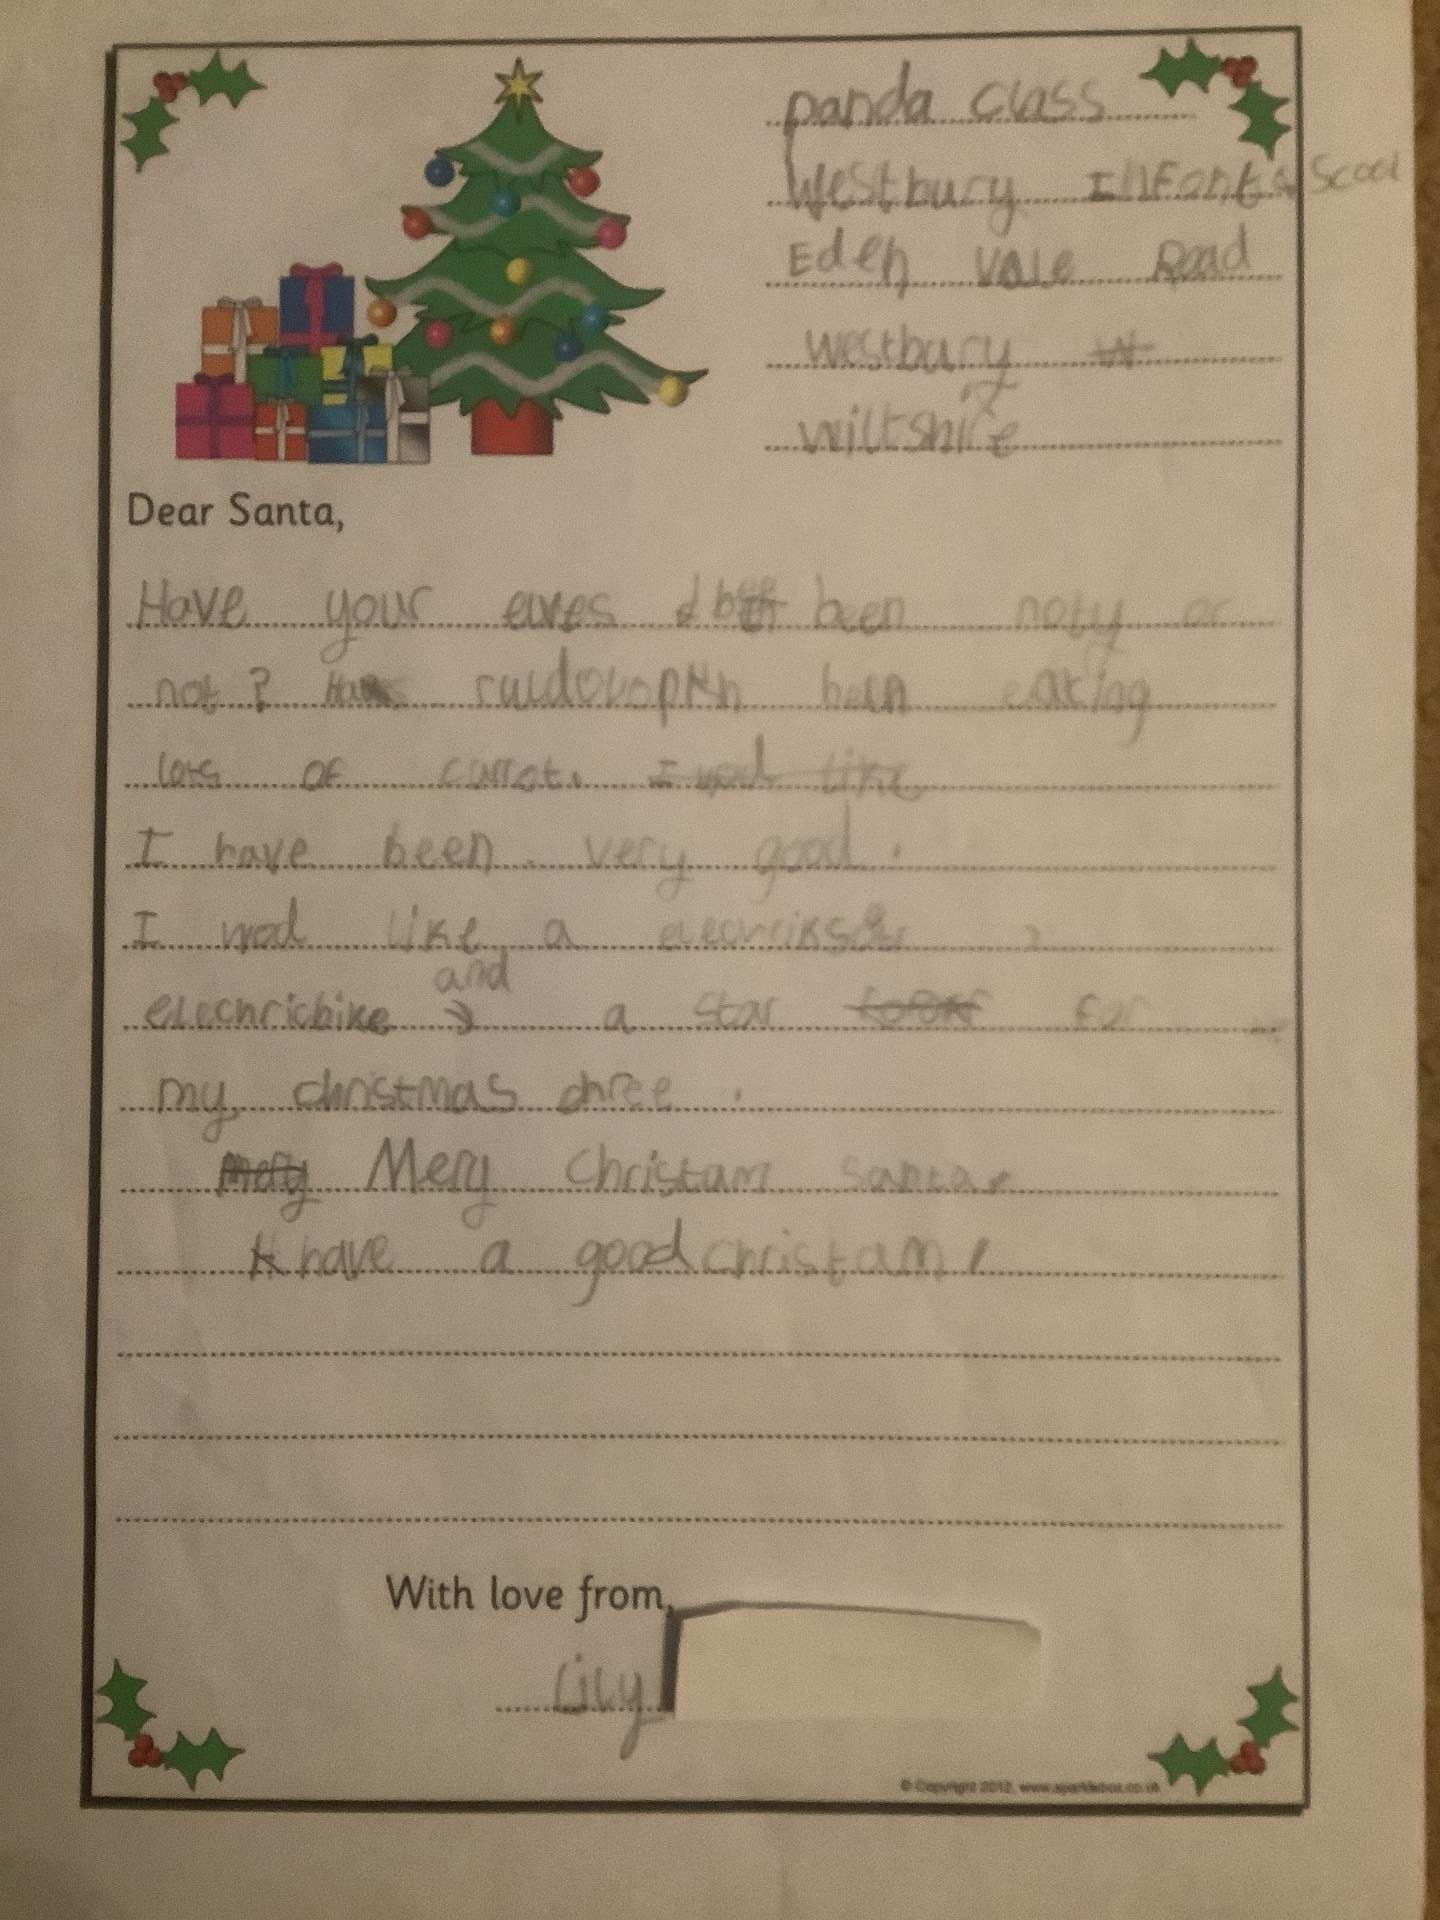 panda class
Westbury Infants Scool
Eden Vale Road
Westbury W
Wiltshire
Dear Santa,
Have your elves been noty or
not? Has ruldovophn been eating
lots of carrot. I wod like
I have been very good.
I wod like a elechrikscotr,
and
elechricbike, a star for
my christmas chree.
Mery Mery Christam Santa.
have a good christam!
With love from,
Lily
© Copyright 2012, www.sparklebox.co.uk